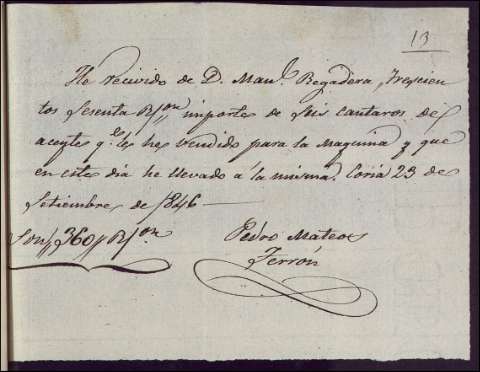 13
He recivido de D. Manl. Begadera, trescien
tos sesenta Rs on importe de seis cantaros de
aceyte q.e les he vendido para la Maquina y que
en este dia he llevado á la misma. Coria 23 de
Setiembre de 1846
Son 360 Rs on
Pedro Mateos
Terrón